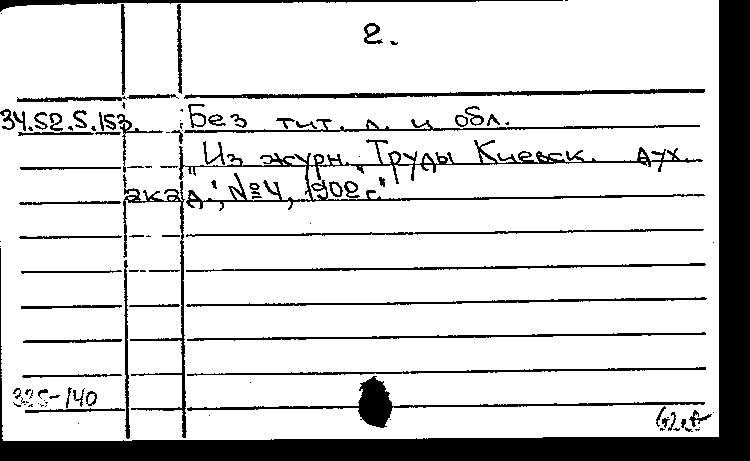 2.
34.52.5.153. Без тит. л. и обл.
„Из журн. „Труды Киевск. дух.
акад.", №4, 1902 г."
335-140